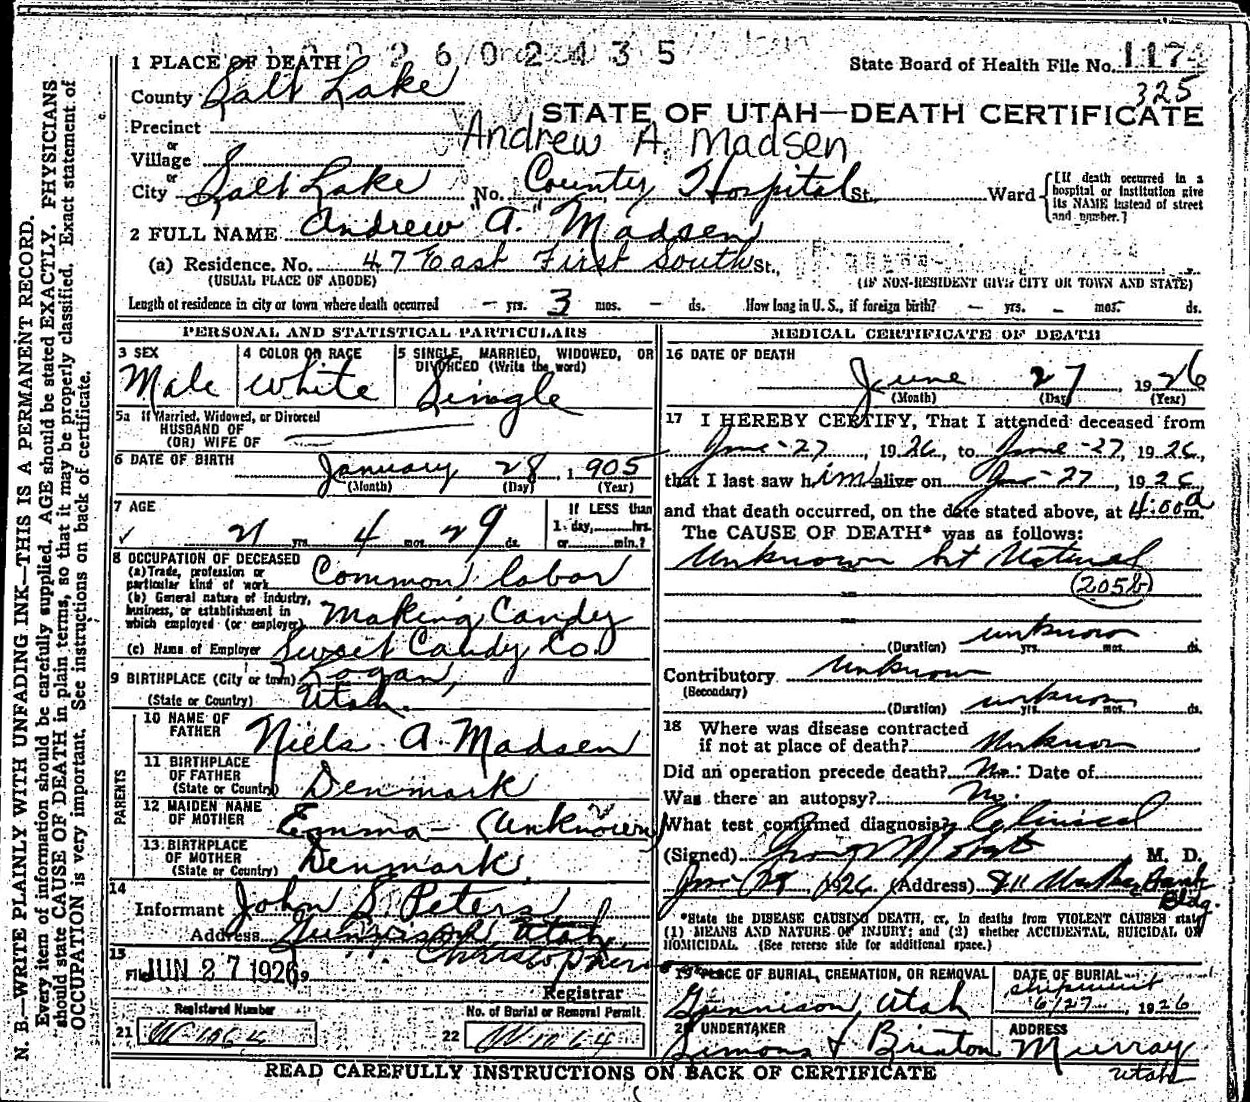 2602435
1 PLACE OF DEATH
State Board of Health File No. 1174
325
County Salt Lake
STATE OF UTAH—DEATH CERTIFICATE
Precinct
Andrew A. Madsen
or
Village
or
City Salt Lake No. County Hospital St. Ward
[If death occurred in a hospital or institution give its NAME instead of street and number.]
2 FULL NAME Andrew "A." Madsen
(a) Residence. No. 47 East First South St.,
(USUAL PLACE OF ABODE)
(IF NON-RESIDENT GIVE CITY OR TOWN AND STATE)
Length of residence in city or town where death occurred — yrs. 3 mos. — ds. How long in U. S., if foreign birth? — yrs. — mos. ds.
PERSONAL AND STATISTICAL PARTICULARS
3 SEX Male
4 COLOR OR RACE White
5 SINGLE, MARRIED, WIDOWED, OR DIVORCED (Write the word) Single
5a If Married, Widowed, or Divorced
HUSBAND OF
(OR) WIFE OF
6 DATE OF BIRTH January 28, 1905
(Month) (Day) (Year)
7 AGE
21 yrs. 4 mos. 29 ds.
If LESS than
1 day, hrs.
or min.?
8 OCCUPATION OF DECEASED
(a) Trade, profession or particular kind of work Common labor
(b) General nature of Industry, business, or establishment in which employed (or employer) Making Candy
(c) Name of Employer Sweet Candy Co.
9 BIRTHPLACE (City or town) Logan,
(State or Country) Utah.
PARENTS
10 NAME OF FATHER Niels A. Madsen
11 BIRTHPLACE OF FATHER (State or Country) Denmark
12 MAIDEN NAME OF MOTHER Emma — (Unknown)
13 BIRTHPLACE OF MOTHER (State or Country) Denmark
14
Informant John S. Peters
Address Gunnison Utah
15
Filed JUN 27 1926
Registrar
Registered Number
No. of Burial or Removal Permit
21
22
MEDICAL CERTIFICATE OF DEATH
16 DATE OF DEATH
June 27, 1926
(Month) (Day) (Year)
17 I HEREBY CERTIFY, That I attended deceased from
June - 27, 1926, to June - 27, 1926,
that I last saw him alive on June - 27, 1926,
and that death occurred, on the date stated above, at 4:00 a m.
The CAUSE OF DEATH* was as follows:
Unknown but Natural
(205b)
unknown
(Duration) yrs. mos. ds.
Contributory unknown
(Secondary)
unknown
(Duration) yrs. mos. ds.
18 Where was disease contracted
if not at place of death? Unknown
Did an operation precede death? No. Date of
Was there an autopsy? No.
What test confirmed diagnosis? Clinical
(Signed) M. D.
1926 (Address) Bank Bldg.
*State the DISEASE CAUSING DEATH, or, in deaths from VIOLENT CAUSES state
(1) MEANS AND NATURE OF INJURY; and (2) whether ACCIDENTAL, SUICIDAL OR
HOMICIDAL. (See reverse side for additional space.)
19 PLACE OF BURIAL, CREMATION, OR REMOVAL
Gunnison, Utah
DATE OF BURIAL
shipment
6/27, 1926
20 UNDERTAKER
ADDRESS
Murray
Utah
READ CAREFULLY INSTRUCTIONS ON BACK OF CERTIFICATE
N. B.—WRITE PLAINLY WITH UNFADING INK—THIS IS A PERMANENT RECORD.
Every item of information should be carefully supplied. AGE should be stated EXACTLY. PHYSICIANS
should state CAUSE OF DEATH in plain terms, so that it may be properly classified. Exact statement of
OCCUPATION is very important. See instructions on back of certificate.